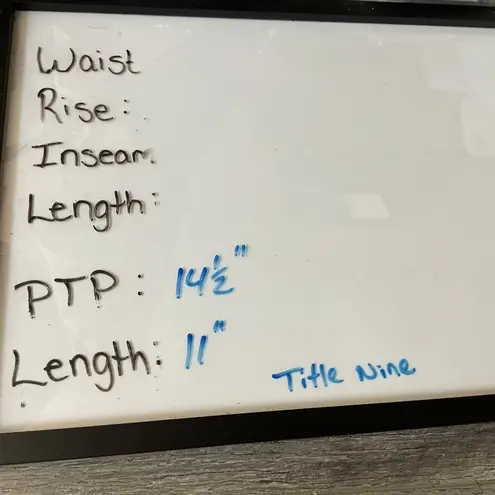 Waist
Rise:
Inseam.
Length:
PTP: 14½"
Length: 11"
Title Nine